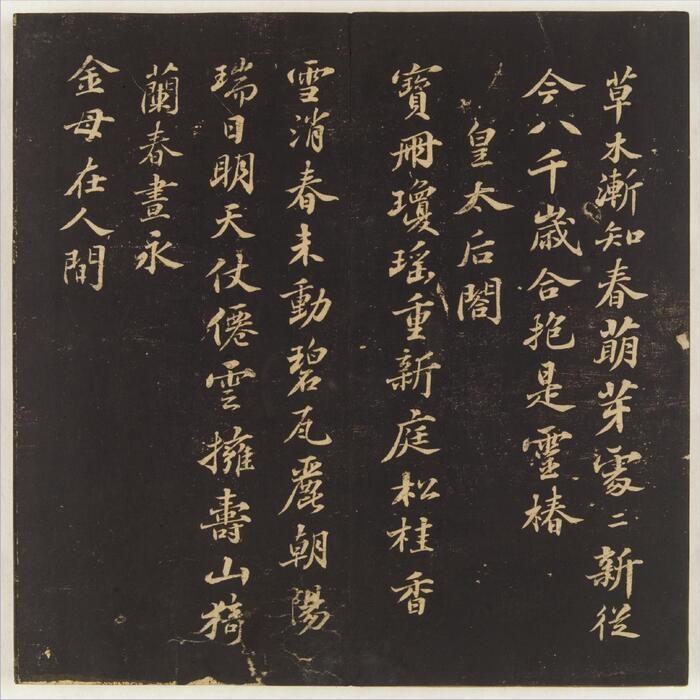 草木漸知春萌芽處二新從
今八千歲合抱是靈椿
皇太后閤
寶冊瓊瑤重新庭松桂香
雪消春未動碧瓦麗朝陽
瑞日明天仗僊雲擁壽山猗
蘭春晝永
金母在人間